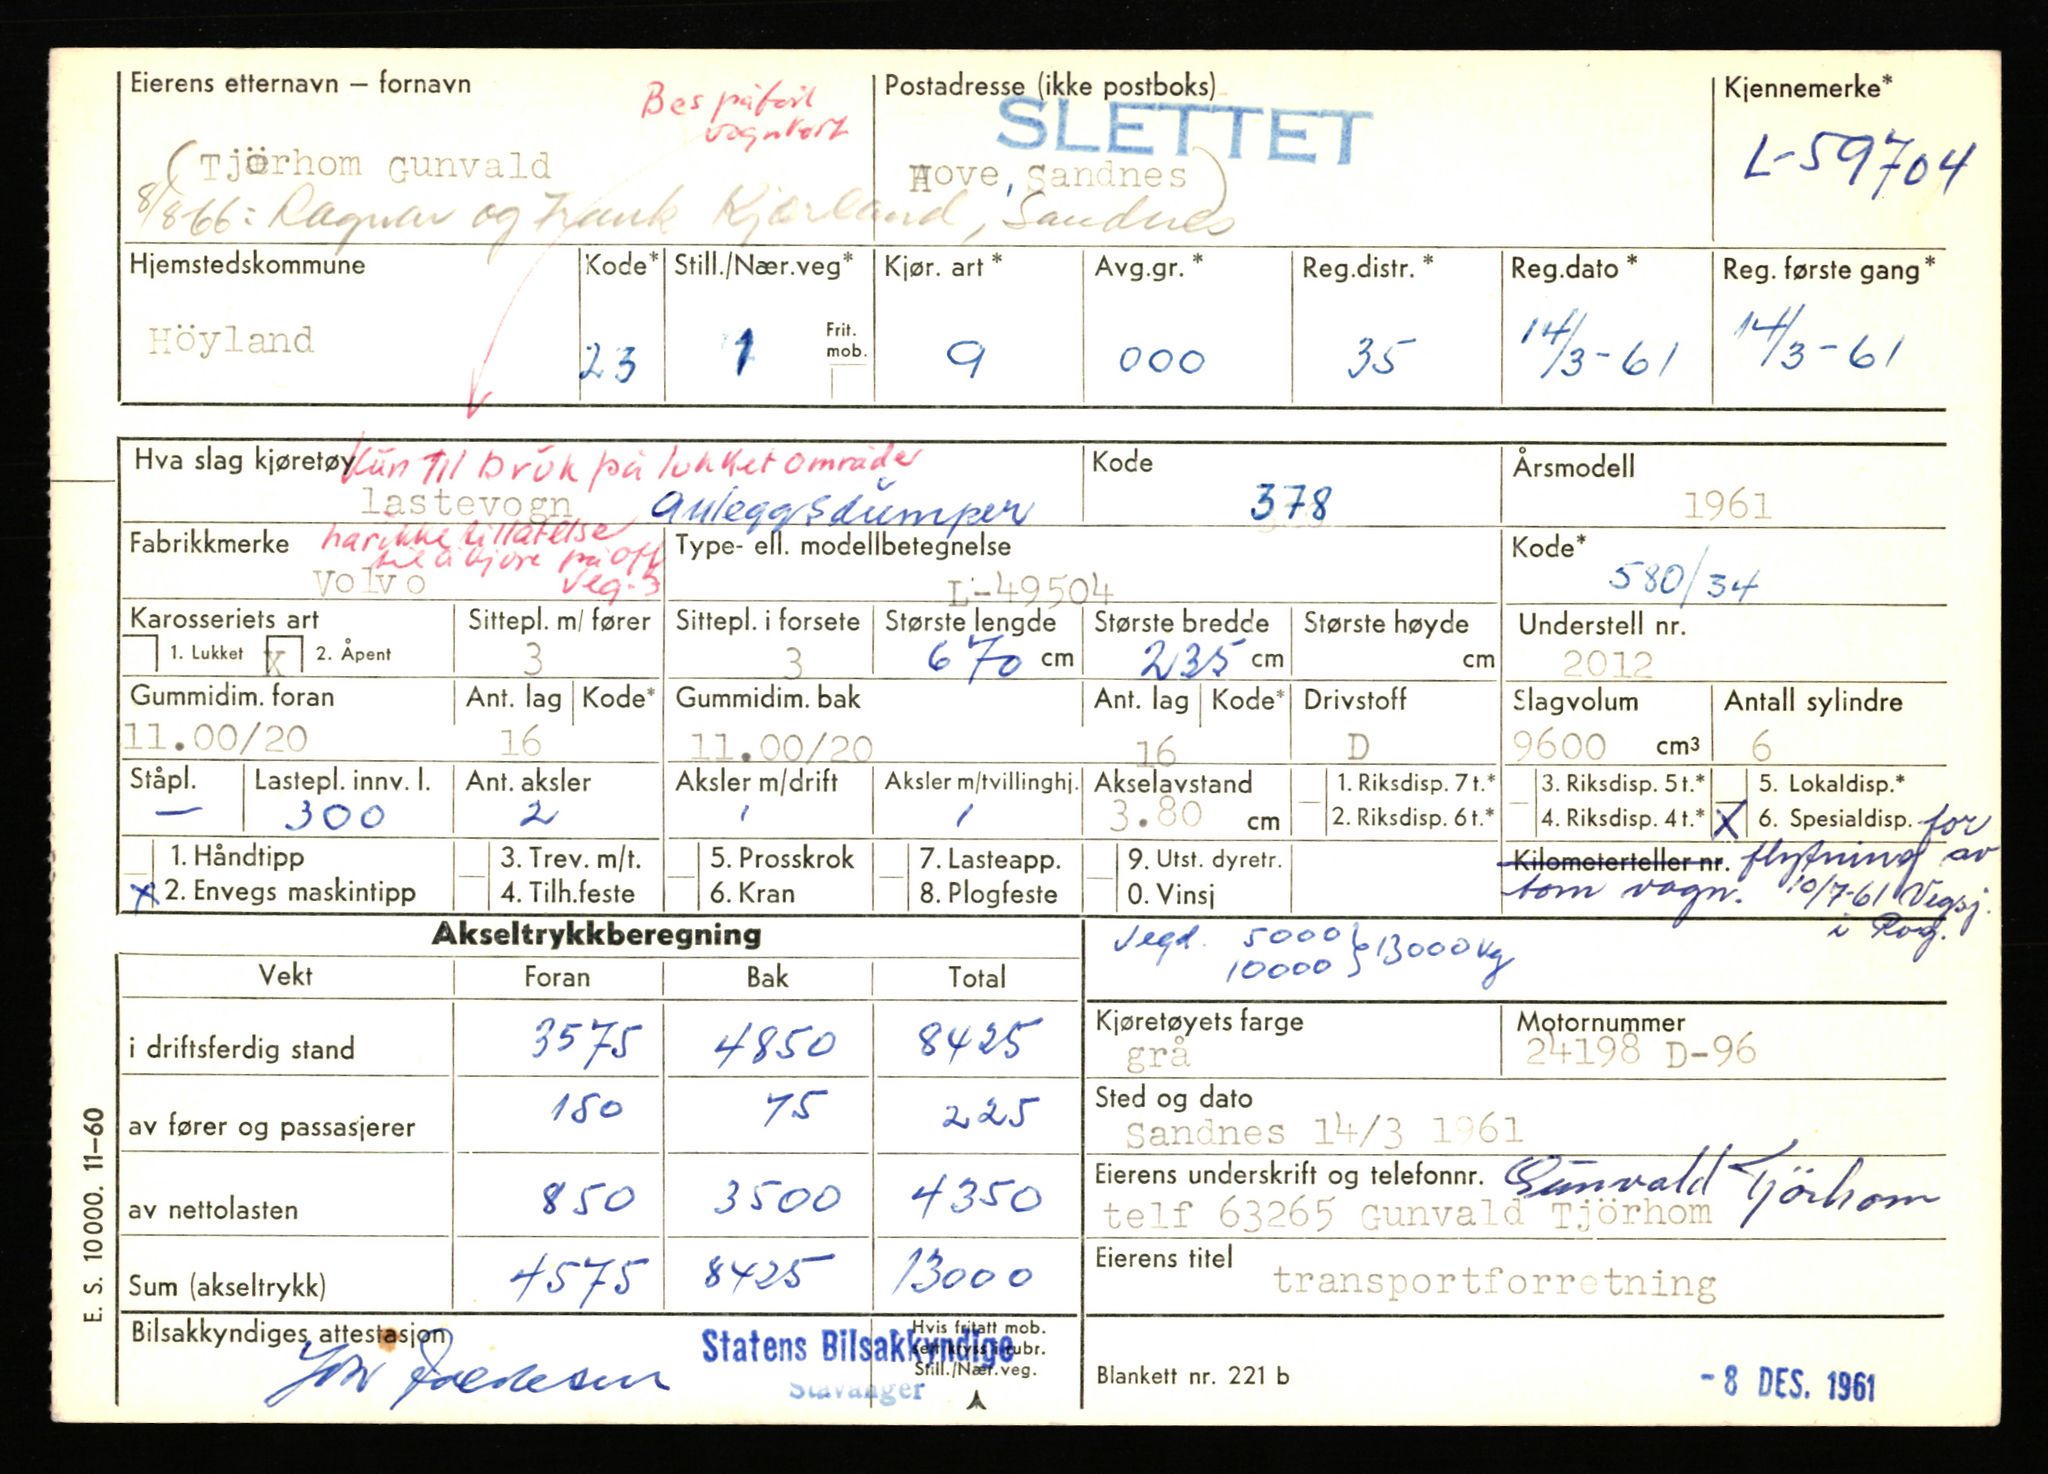 Eierens etternavn – fornavn
Bes påført
vognkort
Postadresse (ikke postboks)
SLETTET
Kjennemerke*
(Tjørhom Gunvald
Hove, Sandnes)
L-59704
8/8-66: Ragnar og Frank Kjærland, Sandnes
Hjemstedskommune
Kode*
Still./Nær.veg*
Kjør. art *
Avg.gr. *
Reg.distr. *
Reg.dato *
Reg. første gang *
Höyland
23
1
Frit. mob.
9
000
35
14/3-61
14/3-61
Hva slag kjøretøy
Kun til bruk på lukket område
Kode
Årsmodell
lastevogn
anleggsdumper
378
1961
Fabrikkmerke
har ikke tillatelse
til å kjøre på off.
veg.
Type- ell. modellbetegnelse
Kode*
Volvo
L-49504
580/34
Karosseriets art
Sittepl. m/ fører
Sittepl. i forsete
Største lengde
Største bredde
Største høyde
Understell nr.
1. Lukket
X
2. Åpent
3
3
670 cm
235 cm
cm
2012
Gummidim. foran
Ant. lag
Kode*
Gummidim. bak
Ant. lag
Kode*
Drivstoff
Slagvolum
Antall sylindre
11.00/20
16
11.00/20
16
D
9600 cm³
6
Ståpl.
Lastepl. innv. l.
Ant. aksler
Aksler m/drift
Aksler m/tvillinghj.
Akselavstand
1. Riksdisp. 7 t.*
3. Riksdisp. 5 t.*
5. Lokaldisp.*
—
300
2
1
1
3.80 cm
2. Riksdisp. 6 t.*
4. Riksdisp. 4 t.*
X
6. Spesialdisp. for
1. Håndtipp
3. Trev. m/t.
5. Prosskrok
7. Lasteapp.
9. Utst. dyretr.
Kilometerteller nr. flytning av
x 2. Envegs maskintipp
4. Tilh.feste
6. Kran
8. Plogfeste
0. Vinsj
tom vogn. 10/7-61 Vegsj.
i Rog.
Akseltrykkberegning
Vegd. 5000 } 13000 kg
10000
Vekt
Foran
Bak
Total
i driftsferdig stand
3575
4850
8425
Kjøretøyets farge
Motornummer
grå
24198 D-96
av fører og passasjerer
150
75
225
Sted og dato
Sandnes 14/3 1961
av nettolasten
850
3500
4350
Eierens underskrift og telefonnr. Gunvald Tjörhom
telf 63265 Gunvald Tjörhom
Sum (akseltrykk)
4575
8425
13000
Eierens titel
transportforretning
Bilsakkyndiges attestasjon
Statens Bilsakkyndige
Stavanger
Hvis fritatt mob.
sett kryss i rubr.
Still./Nær.veg.
Blankett nr. 221 b
- 8 DES. 1961
E. S. 10000. 11–60